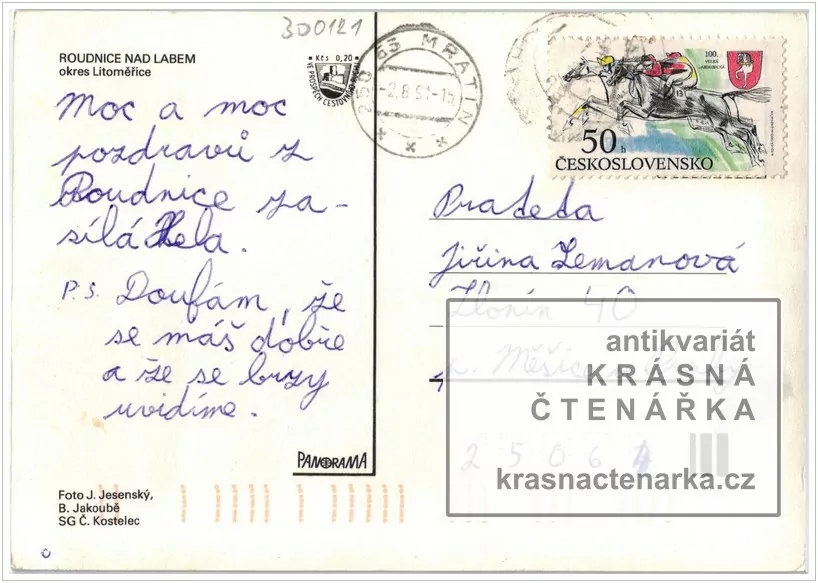 300121
ROUDNICE NAD LABEM
okres Litoměřice
Kčs 0,20
VE PROSPĚCH CESTOVNÍHO
250 63 MRATÍN
-2.8.91-15
100.
VELKÁ
PARDUBICKÁ
13
50 h
ČESKOSLOVENSKO
Moc a moc
pozdravů z
Roudnice za-
sílá Hela.
P.S. Doufám, že
se máš dobře
a že se brzy
uvidíme.
Prateta
Jiřina Zemanová
Zlonín 40
p. Měšice u Prahy
25064
antikvariát
KRÁSNÁ
ČTENÁŘKA
krasnactenarka.cz
PANORAMA
Foto J. Jesenský,
B. Jakoubě
SG Č. Kostelec